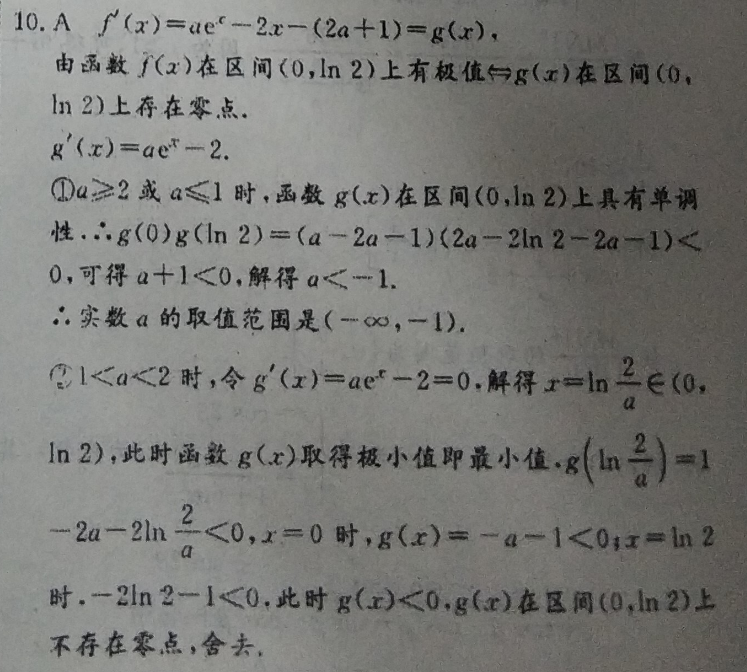 10. A f′(x)=aeˣ-2x-(2a+1)=g(x),
由函数 f(x)在区间(0,ln 2)上有极值⇔g(x)在区间(0,
ln 2)上存在零点.
g′(x)=aeˣ-2.
①a≥2 或 a≤1 时,函数 g(x)在区间(0,ln 2)上具有单调
性.∴g(0)g(ln 2)=(a-2a-1)(2a-2ln 2-2a-1)<
0,可得 a+1<0,解得 a<-1.
∴实数 a 的取值范围是(-∞,-1).
②1<a<2 时,令 g′(x)=aeˣ-2=0,解得 x=ln 2/a∈(0,
ln 2),此时函数 g(x)取得极小值即最小值.g(ln 2/a)=1
-2a-2ln 2/a<0,x=0 时,g(x)=-a-1<0;x=ln 2
时.-2ln 2-1<0.此时 g(x)<0,g(x)在区间(0,ln 2)上
不存在零点,舍去.